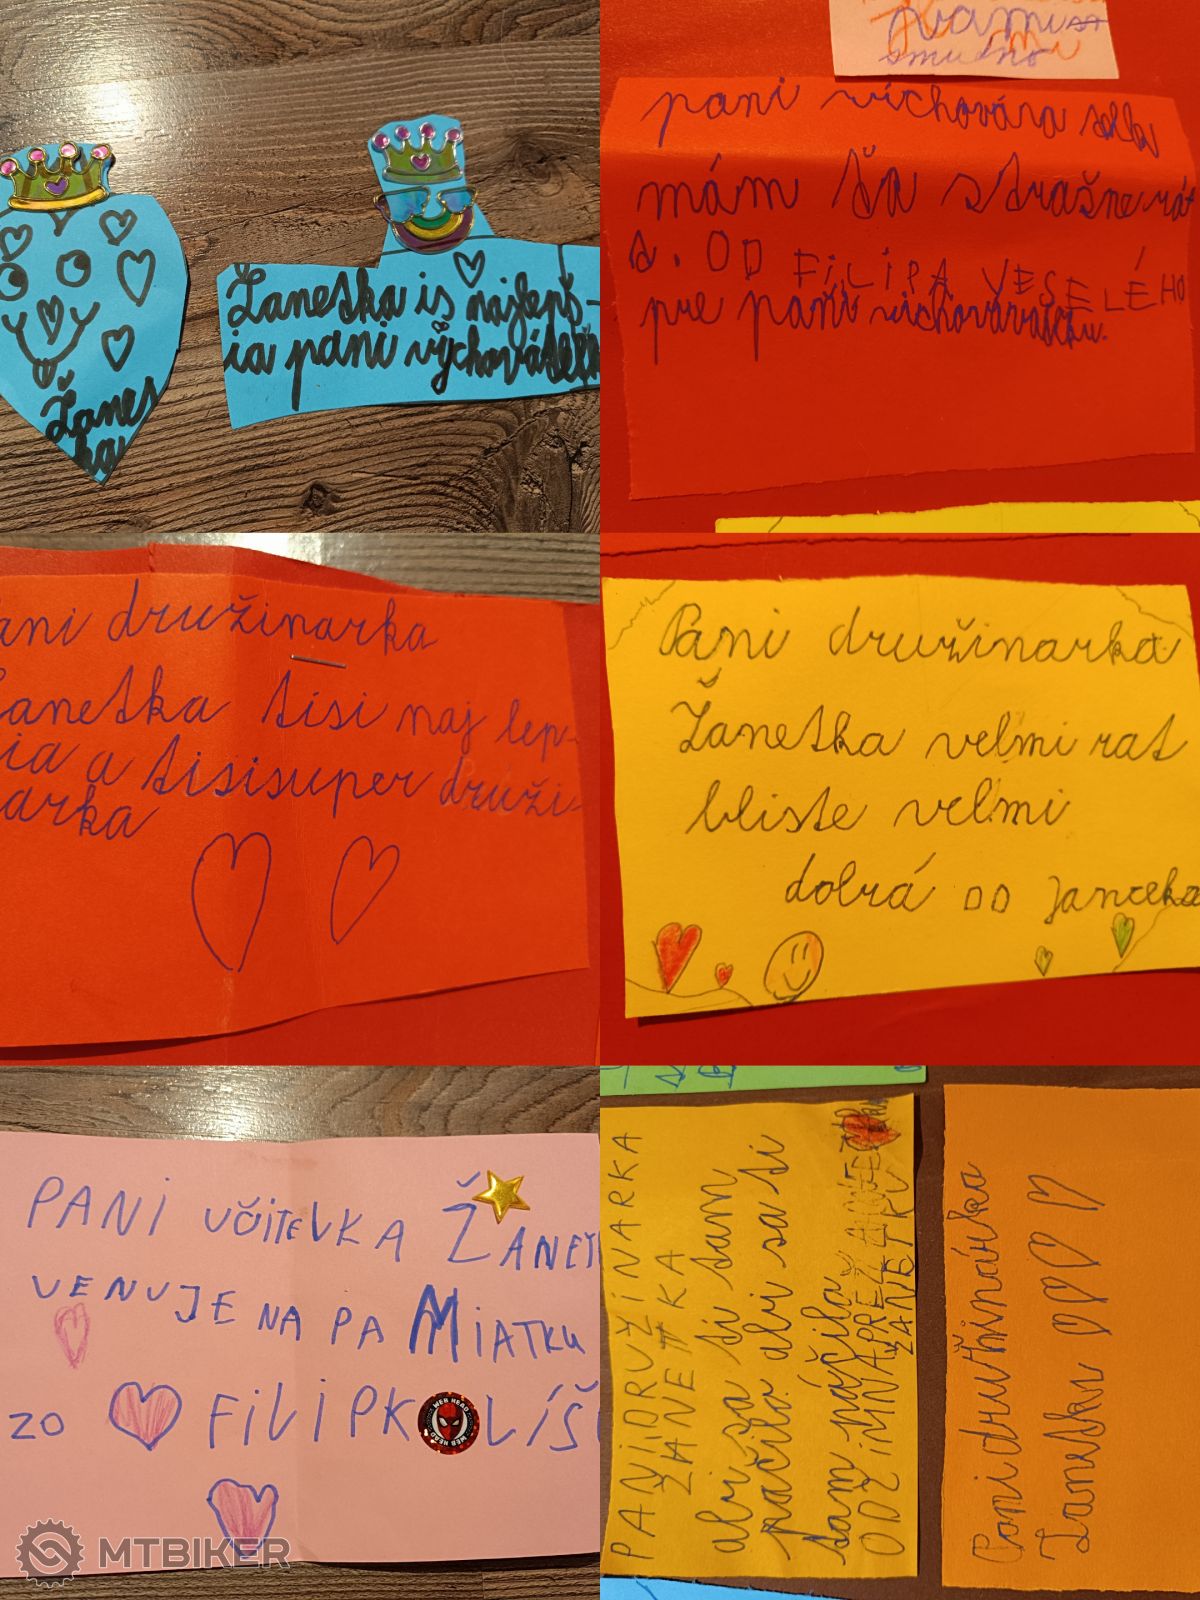 Žanet
ka
Žanetka is najlepš-
ia pani vychovátelk
smudno
pani vichovára
mám ťa strašne rát
OD FILIPA VESELÉHO
pre pani
ani družinarka
anetka tisi naj lep-
ia a tisisuper druži-
arka
Pani družinarka
Žanetka veľmi rat
bliste veľmi
dobrá OD Janceka
PANI UČITEVKA ŽANET
VENUJE NA PA MIATKU
ZO FILIPK LÍŠ
WEB HEAD
WEB HEAD
PANIDRUŽINARKA
ŽANETKA
abi sa ti tam
páčilo abi sa ti
tam páčila
Pani družinárka
Žanetka
MTBIKER